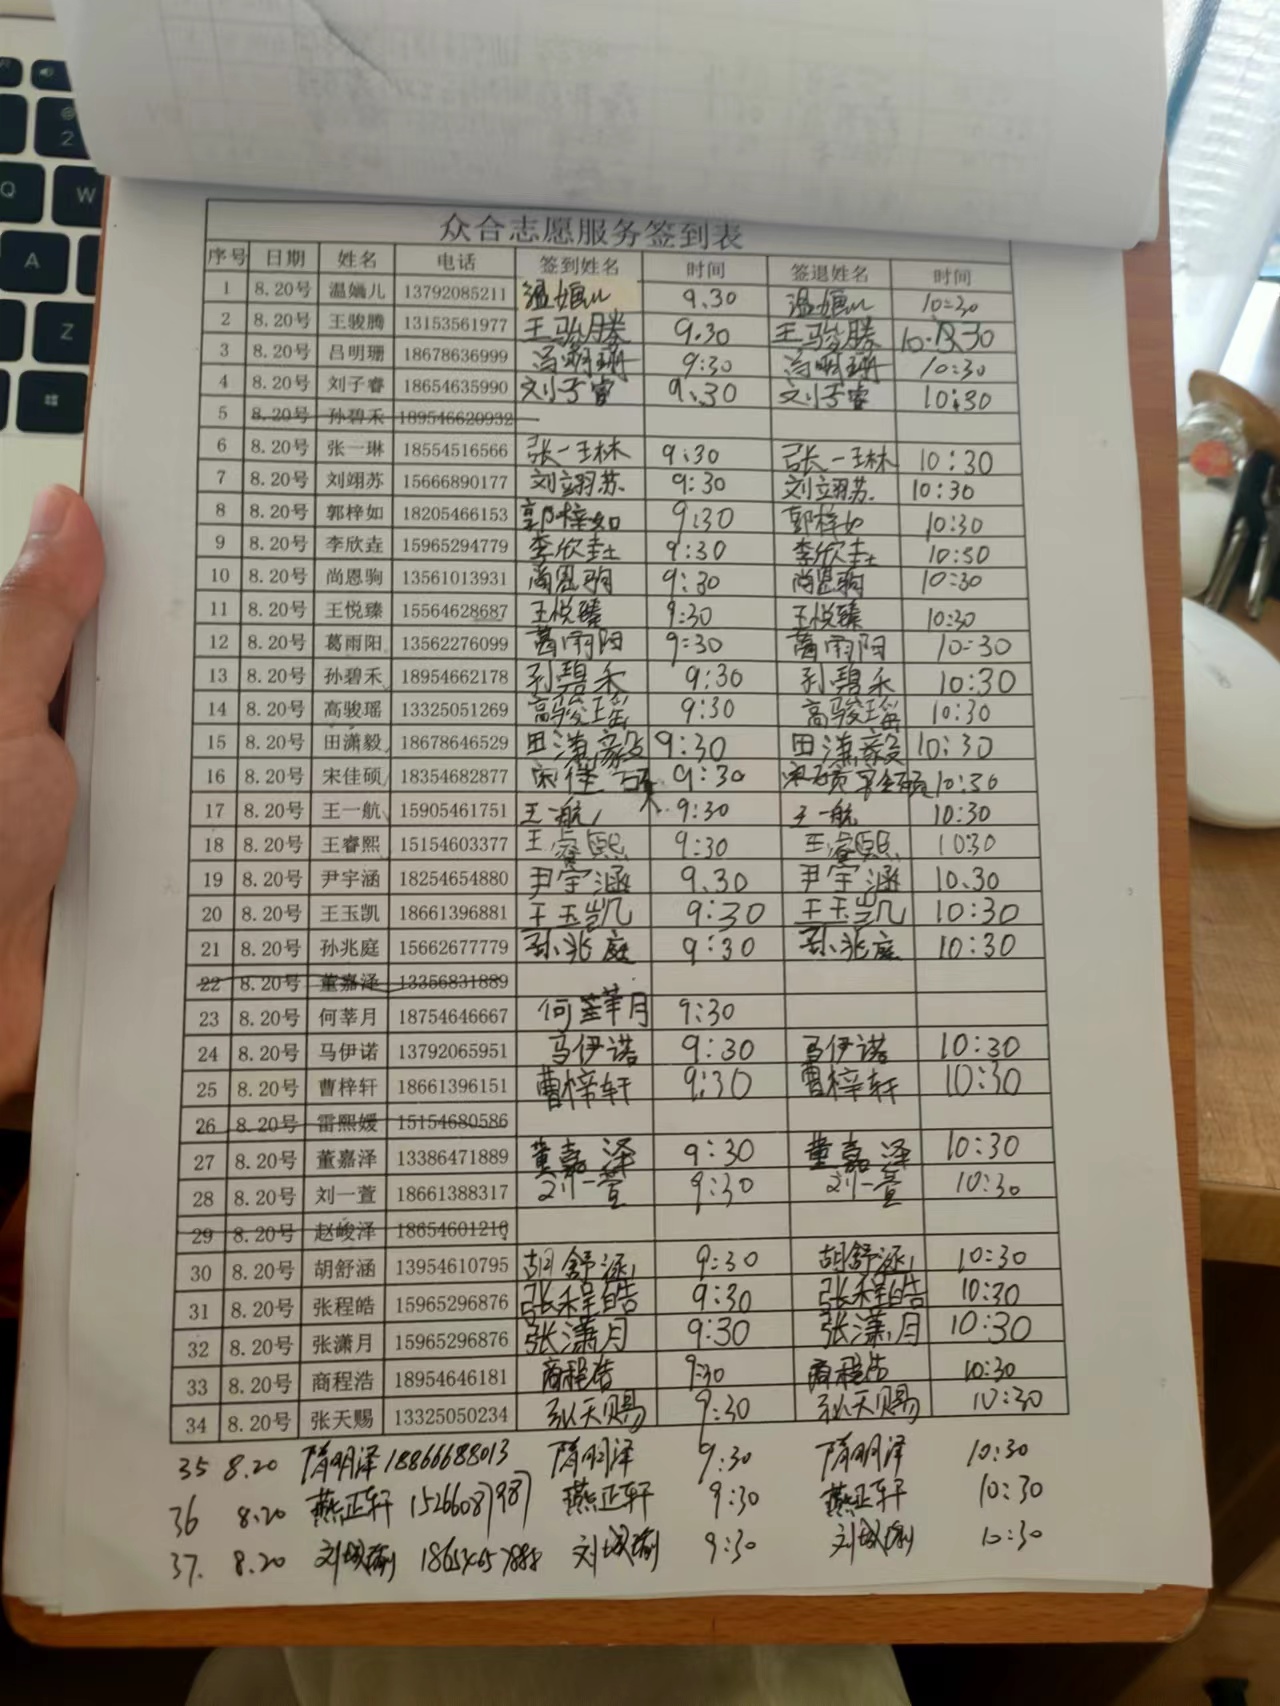 众合志愿服务签到表
序号 日期 姓名 电话 签到姓名 时间 签退姓名 时间
1 8.20号 温婳儿 13792085211 温婳儿 9.30 温婳儿 10:30
2 8.20号 王骏腾 13153561977 王骏腾 9.30 王骏腾 10:30
3 8.20号 吕明珊 18678636999 吕明珊 9:30 吕明珊 10:30
4 8.20号 刘子睿 18654635990 刘子睿 9.30 刘子睿 10:30
5 8.20号 孙碧禾 189546620932
6 8.20号 张一琳 18554516566 张一琳 9:30 张一琳 10:30
7 8.20号 刘翊苏 15666890177 刘翊苏 9:30 刘翊苏 10:30
8 8.20号 郭梓如 18205466153 郭梓如 9:30 郭梓如 10:30
9 8.20号 李欣垚 15965294779 李欣垚 9:30 李欣垚 10:30
10 8.20号 尚恩驹 13561013931 尚恩驹 9:30 尚恩驹 10:30
11 8.20号 王悦臻 15564628687 王悦臻 9:30 王悦臻 10:30
12 8.20号 葛雨阳 13562276099 葛雨阳 9:30 葛雨阳 10:30
13 8.20号 孙碧禾 18954662178 孙碧禾 9:30 孙碧禾 10:30
14 8.20号 高骏瑶 13325051269 高骏瑶 9:30 高骏瑶 10:30
15 8.20号 田潇毅 18678646529 田潇毅 9:30 田潇毅 10:30
16 8.20号 宋佳硕 18354682877 宋佳硕 9:30 10:30
17 8.20号 王一航 15905461751 王一航 9:30 王一航 10:30
18 8.20号 王睿熙 15154603377 王睿熙 9:30 王睿熙 10:30
19 8.20号 尹宇涵 18254654880 尹宇涵 9.30 尹宇涵 10.30
20 8.20号 王玉凯 18661396881 王玉凯 9:30 王玉凯 10:30
21 8.20号 孙兆庭 15662677779 孙兆庭 9:30 孙兆庭 10:30
22 8.20号 董嘉泽 13356831889
23 8.20号 何莘月 18754646667 何莘月 9:30
24 8.20号 马伊诺 13792065951 马伊诺 9:30 马伊诺 10:30
25 8.20号 曹梓轩 18661396151 曹梓轩 9:30 曹梓轩 10:30
26 8.20号 雷熙媛 15154680586
27 8.20号 董嘉泽 13386471889 董嘉泽 9:30 董嘉泽 10:30
28 8.20号 刘一萱 18661388317 刘一萱 9:30 刘一萱 10:30
29 8.20号 赵峻泽 18654601216
30 8.20号 胡舒涵 13954610795 胡舒涵 9:30 胡舒涵 10:30
31 8.20号 张程皓 15965296876 张程皓 9:30 张程皓 10:30
32 8.20号 张潇月 15965296876 张潇月 9:30 张潇月 10:30
33 8.20号 商程浩 18954646181 商程浩 9:30 商程浩 10:30
34 8.20号 张天赐 13325050234 张天赐 9:30 张天赐 10:30
35 8.20 隋明泽 18866688013 隋明泽 9:30 隋明泽 10:30
36 8.20 燕正轩 15266087987 燕正轩 9:30 燕正轩 10:30
37. 8.20 9:30 10:30